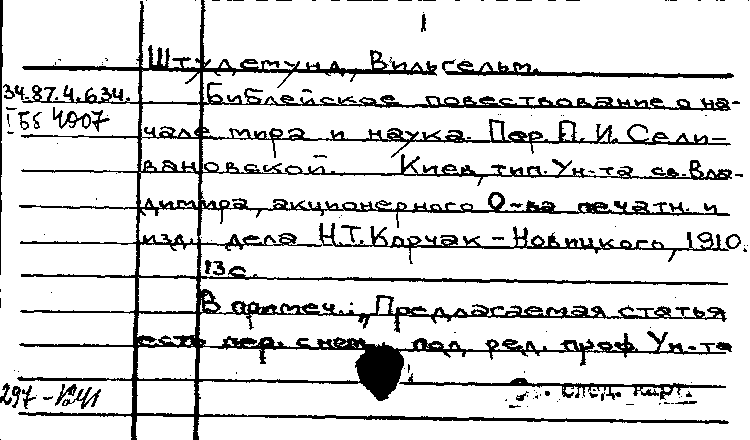 1
Штудемунд, Вильгельм.
34.87.4.634.
Библейское повествование о на-
I Бб 4907
чале мира и наука. Пер. П. И. Сели-
вановской. Киев, тип. Ун-та св. Вла-
димира, акционерного О-ва печатн. и
изд. дела Н.Т. Корчак-Новицкого, 1910.
13 с.
В примеч.: „Предлагаемая статья
есть пер. с нем., под ред. проф. Ун-та
См. след. карт.
297-